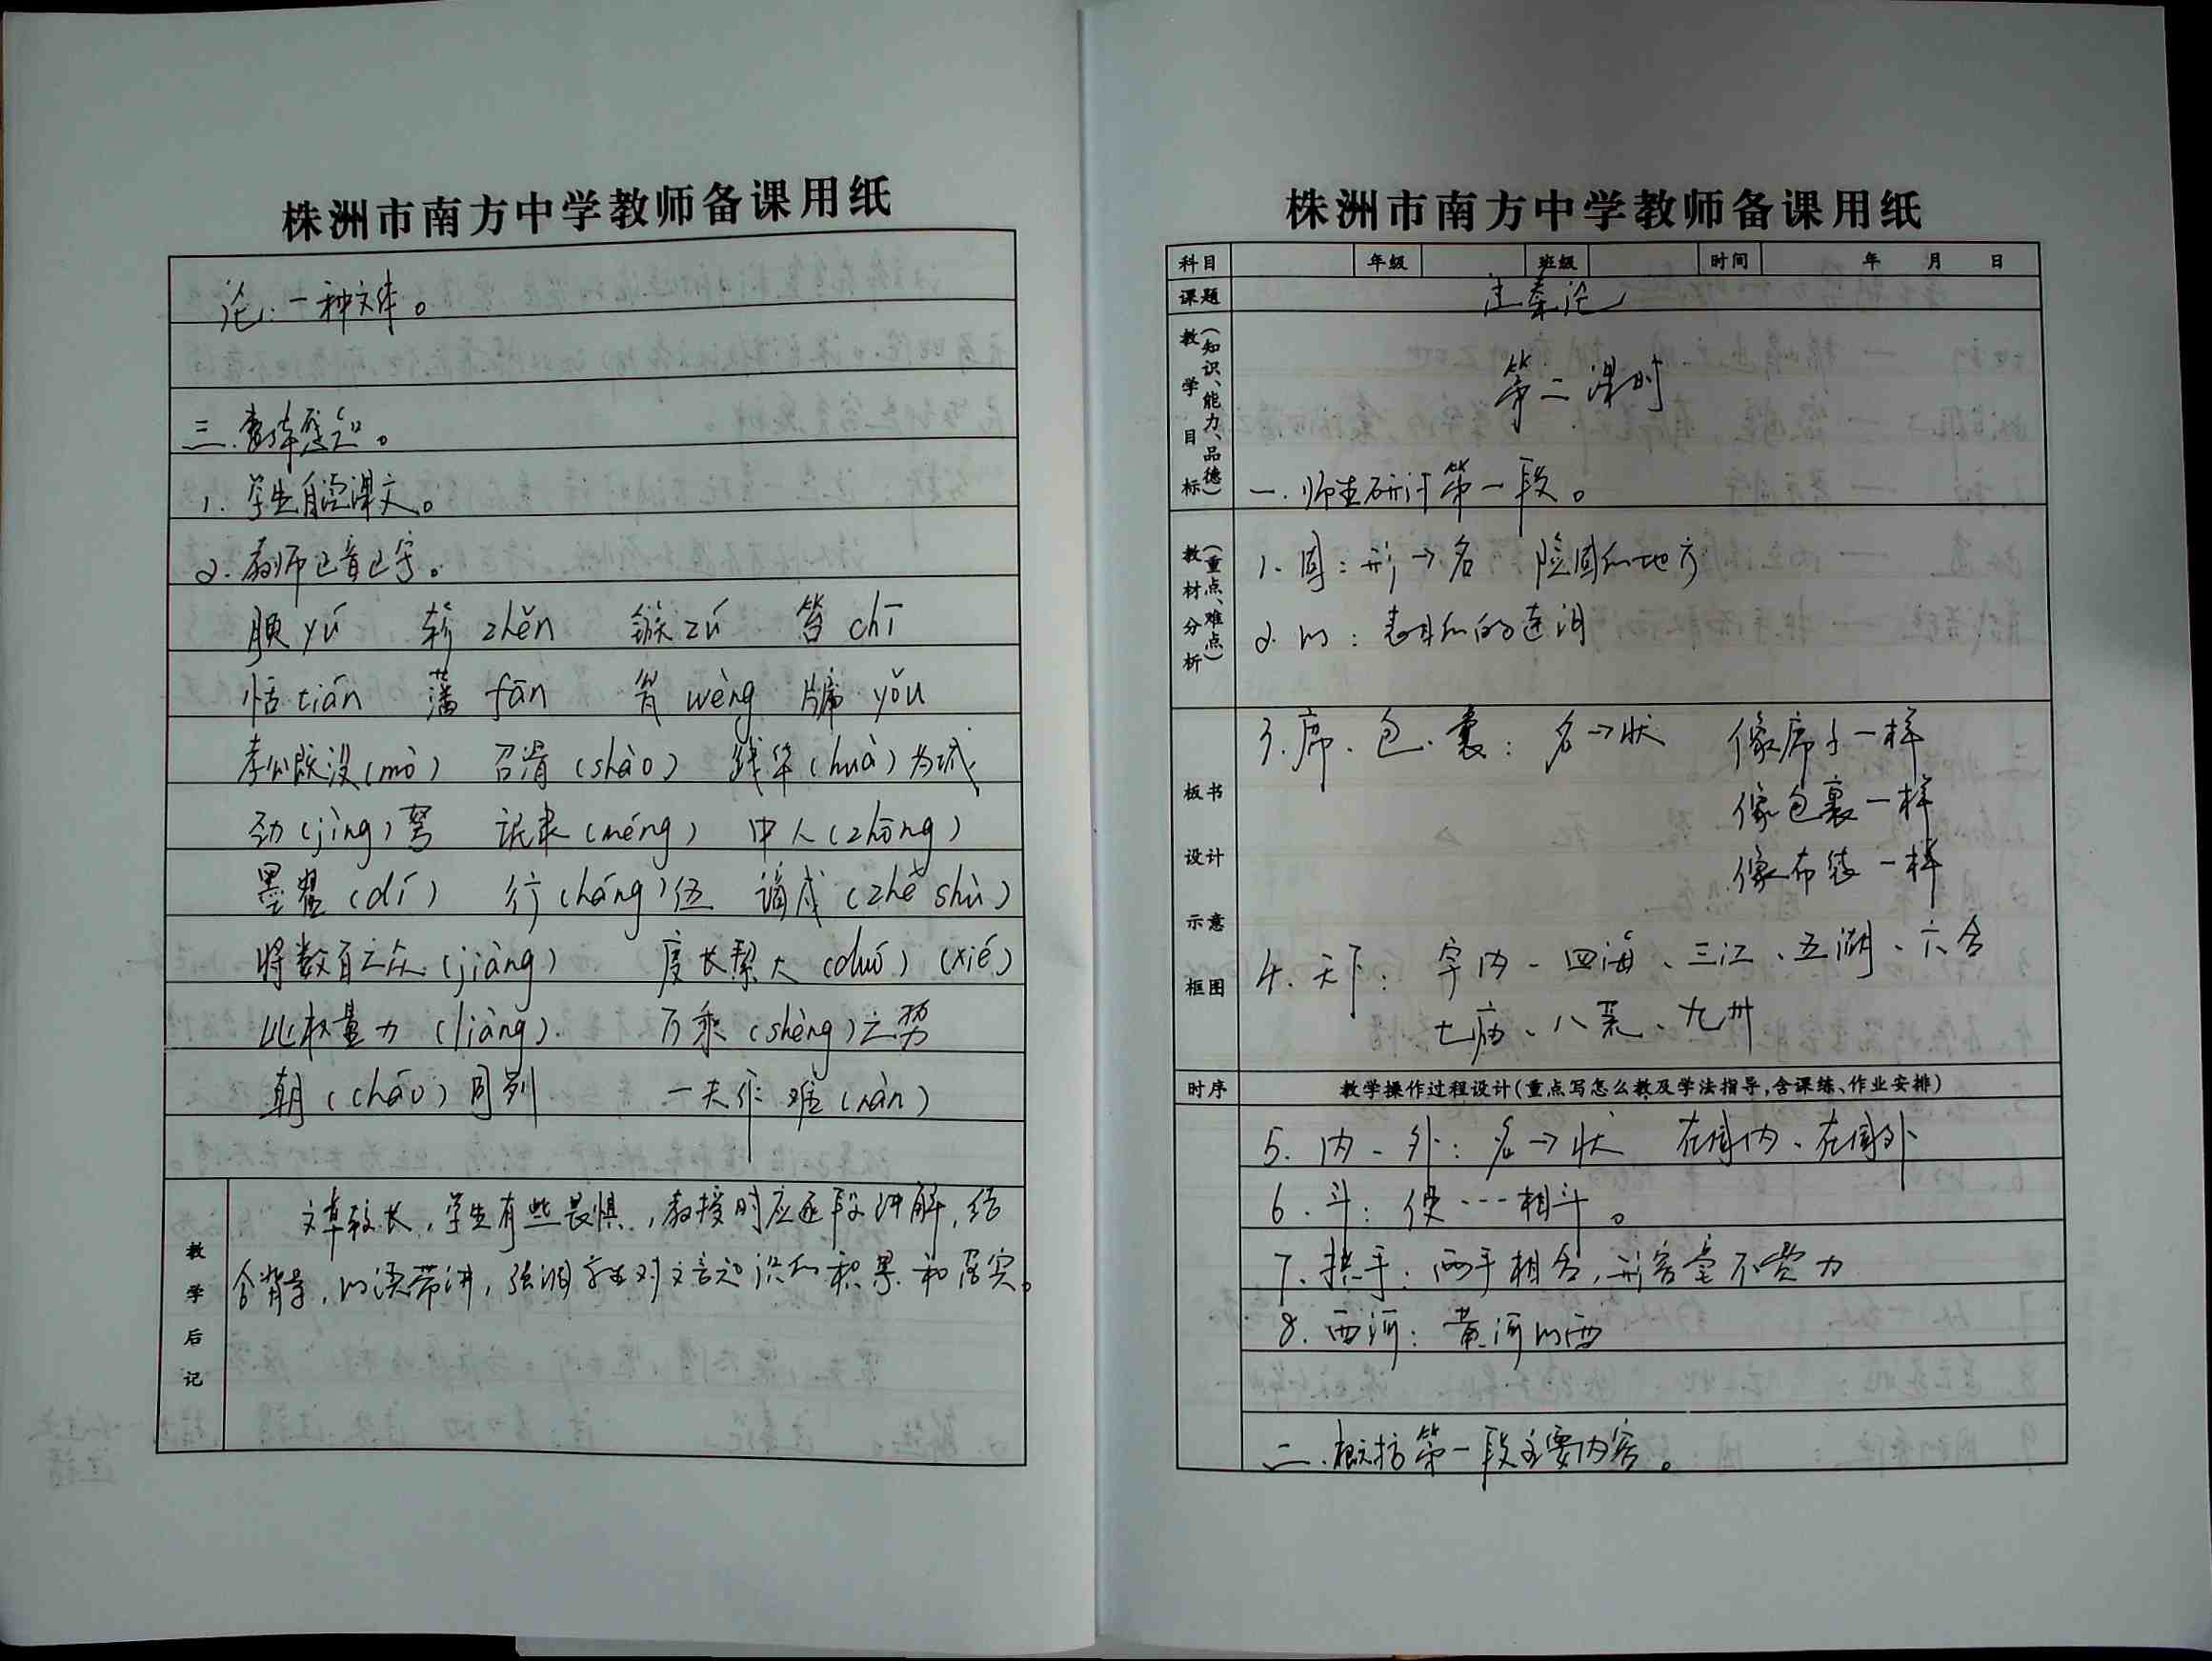 株洲市南方中学教师备课用纸
论:一种文体。
三.整体感知。
1. 学生自读课文。
2. 教师正音正字。
腴 yú 轸 zhěn 镞 zú 笞 chī
恬 tián 藩 fān 瓮 wèng 牖 yǒu
孝公既没(mò) 召滑(shào) 践华(huà)为城
劲(jìng)弩 氓隶(méng) 中人(zhōng)
墨翟(dí) 行(háng)伍 谪戍(zhé shù)
将数百之众(jiàng) 度长絜大(duó)(xié)
比权量力(liàng). 万乘(shèng)之势
朝(cháo)同列 一夫作难(nàn)
教学后记
文章较长,学生有些畏惧,教授时应逐段讲解,结
合背景,以读带讲,强调学生对文言知识的积累和落实。
株洲市南方中学教师备课用纸
科目 年级 班级 时间 年 月 日
课题 过秦论
教学目标(知识、能力、品德)
第二课时
一.师生研讨第一段。
教材分析(重点、难点)
1. 固:形→名 险固的地方
2. 以:表目的的连词
板书设计示意框图
3. 席、包、囊:名→状 像席子一样
像包裹一样
像布袋一样
4. 天下: 宇内、四海、三江、五湖、六合
七庙、八荒、九州
时序 教学操作过程设计(重点写怎么教及学法指导,含课练、作业安排)
5. 内、外:名→状 在国内、在国外
6. 斗:使…相斗。
7. 拱手:两手相合,形容毫不费力
8. 西河:黄河以西
二.概括第一段主要内容。